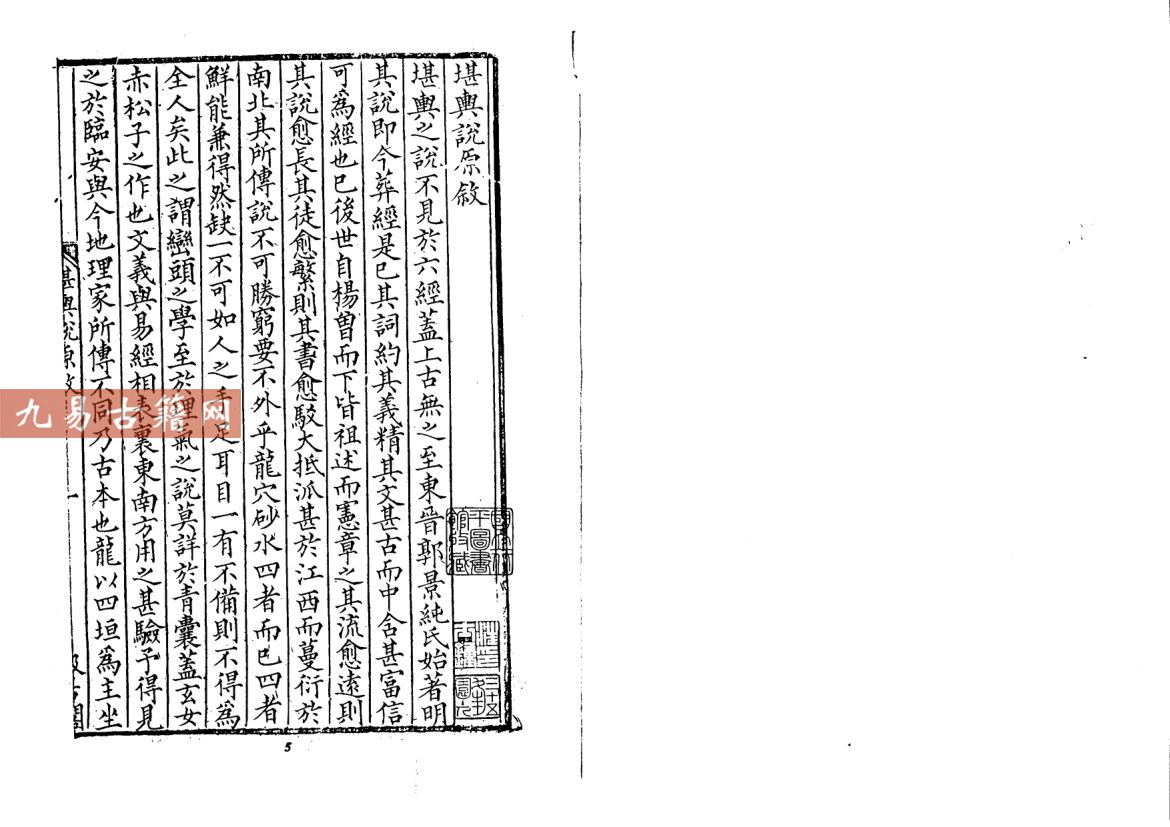 堪輿說原敘
堪輿之說不見於六經蓋上古無之至東晉郭景純氏始著明
其說即今葬經是已其詞約其義精其文甚古而中含甚富信
可爲經也已後世自楊曾而下皆祖述而憲章之其流愈遠則
其說愈長其徒愈繁則其書愈駁大抵派甚於江西而蔓衍於
南北其所傳說不可勝窮要不外乎龍穴砂水四者而已四者
鮮能兼得然缺一不可如人之手足耳目一有不備則不得爲
全人矣此之謂巒頭之學至於理氣之說莫詳於青囊蓋玄女
赤松子之作也文義與易經相表裏東南方用之甚驗予得見
之於臨安與今地理家所傳不同乃古本也龍以四垣爲主坐
堪輿說原敘
一
九易古籍网
5